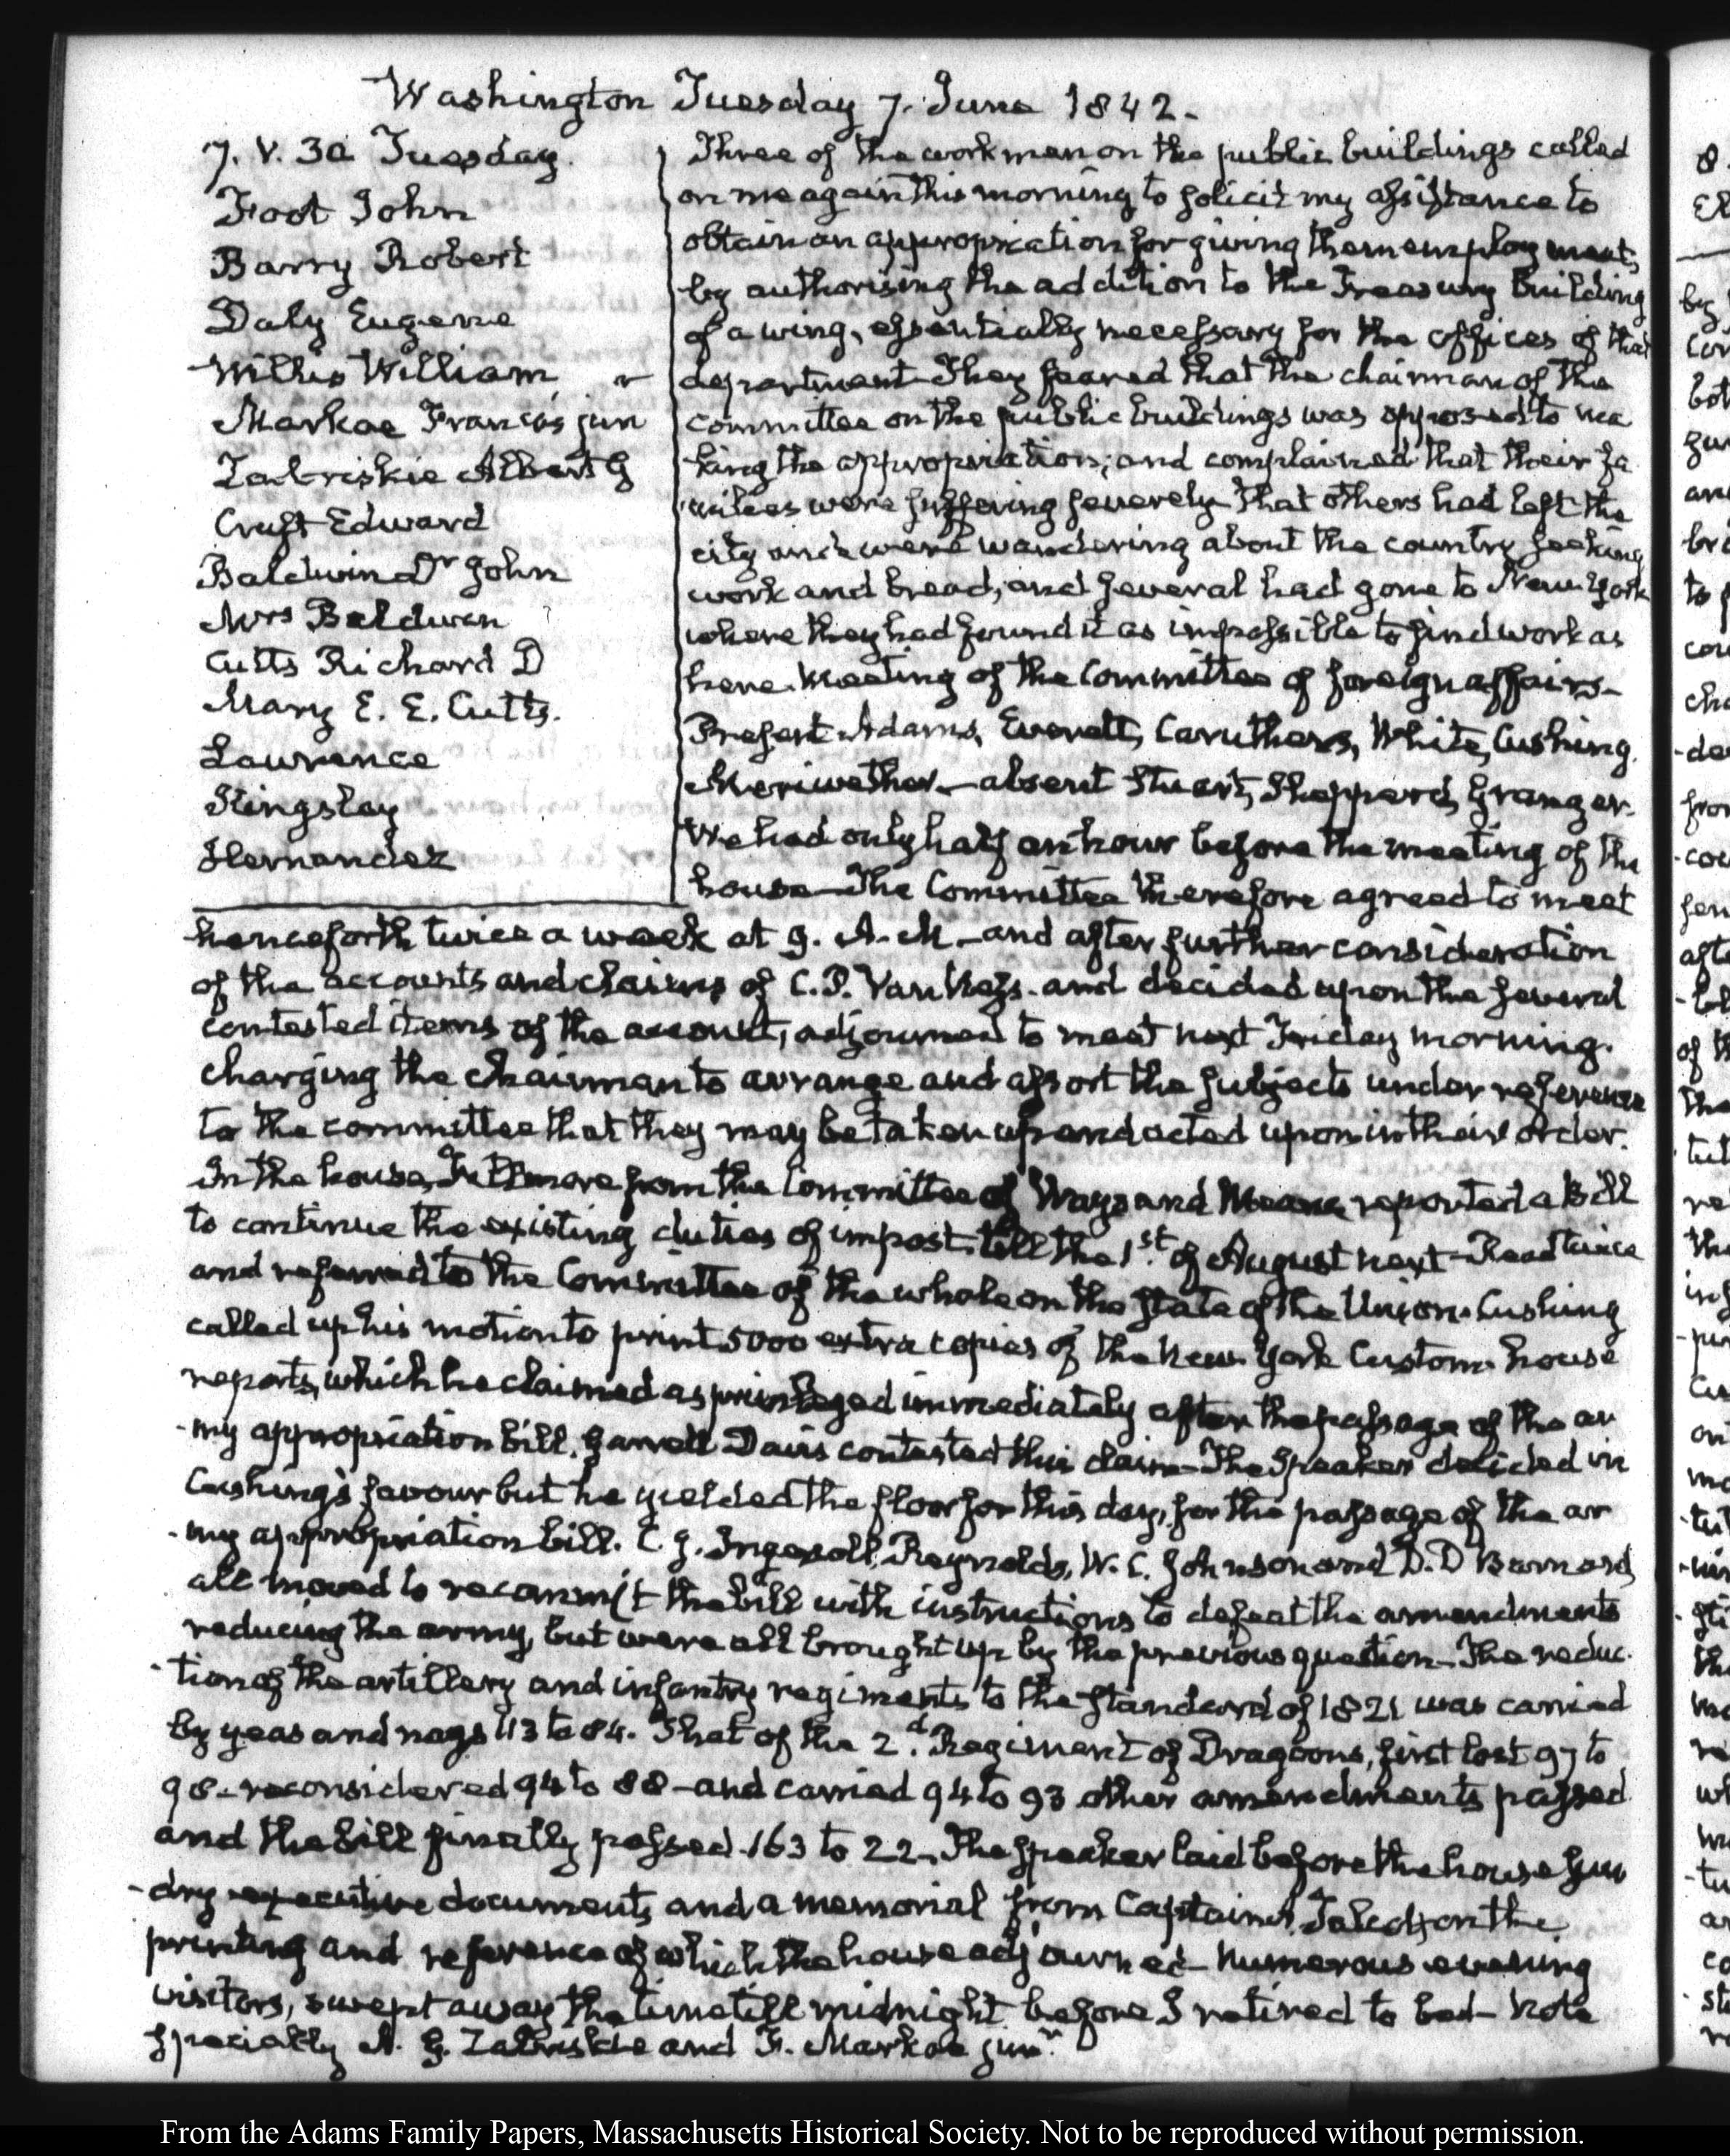 Washington Tuesday 7. June 1842.
7. V. 30 Tuesday.
Foot John
Barry Robert
Daly Eugene
Willis William
Markoe Francis jun r
Zabriskie Albert G
Cruft Edward
Baldwin Dr John
Mrs Baldwin
Cutts Richard D
Mary E. E. Cutts.
Lawrence
Kingsley
Hernandez
Three of the workmen on the public buildings called
on me again this morning to solicit my assistance to
obtain an appropriation for giving them employment,
by authorising the addition to the Treasury Building
of a wing, essentially necessary for the offices of that
department. They feared that the chairman of the
committee on the public buildings was opposed to ma
king the appropriation; and complained that their fa
milies were suffering severely. That others had left the
city and were wandering about the country seeking
work and bread, and several had gone to New-York
where they had found it as impossible to find work as
here. Meeting of the Committee of foreign affairs—
Present Adams, Everett, Caruthers, White, Cushing,
Meriwether.—absent Stuart, Shepperd, Granger.
We had only half an hour before the meeting of the
house—The Committee therefore agreed to meet
henceforth twice a week at 9. A.M.—and after further consideration
of the accounts and claims of C. P. Van Ness. and decided upon the several
contested items of the account, adjourned to meet next Friday morning.
charging the chairman to arrange and assort the subjects under reference
to the committee that they may be taken up and acted upon in their order.
In the house, Fillmore from the Committee of Ways and Means reported a Bill
to continue the existing duties of impost till the 1st. of August next—Read twice
and referred to the Committee of the whole on the state of the Union. Cushing
called up his motion to print 5000 extra copies of the New-York Custom-house
reports, which he claimed as privileged immediately after the passage of the ar
-my appropriation bill. Garrett Davis contested this claim—The Speaker decided in
Cushing's favour but he yielded the floor for this day, for the passage of the ar
-my appropriation bill. C. J. Ingersoll, Reynolds, W. C. Johnson and D. D Barnard
all moved to recommit the bill with instructions to defeat the amendments
reducing the army, but were all brought up by the previous question—The reduc-
-tion of the artillery and infantry regiments to the standard of 1821 was carried
by yeas and nays 113 to 84. That of the 2d. Regiment of Dragoons, first lost 97 to
98—reconsidered 94 to 88—and carried 94 to 93 other amendments passed
and the bill finally passed 163 to 22—The Speaker laid before the house sun
-dry executive documents and a memorial from Captain on the
printing and reference of which the house adjourned—Numerous evening
visitors, swept away the time till midnight before I retired to bed—Note
specially A. G. Zabriskie and F. Markoe junr.
From the Adams Family Papers, Massachusetts Historical Society. Not to be reproduced without permission.